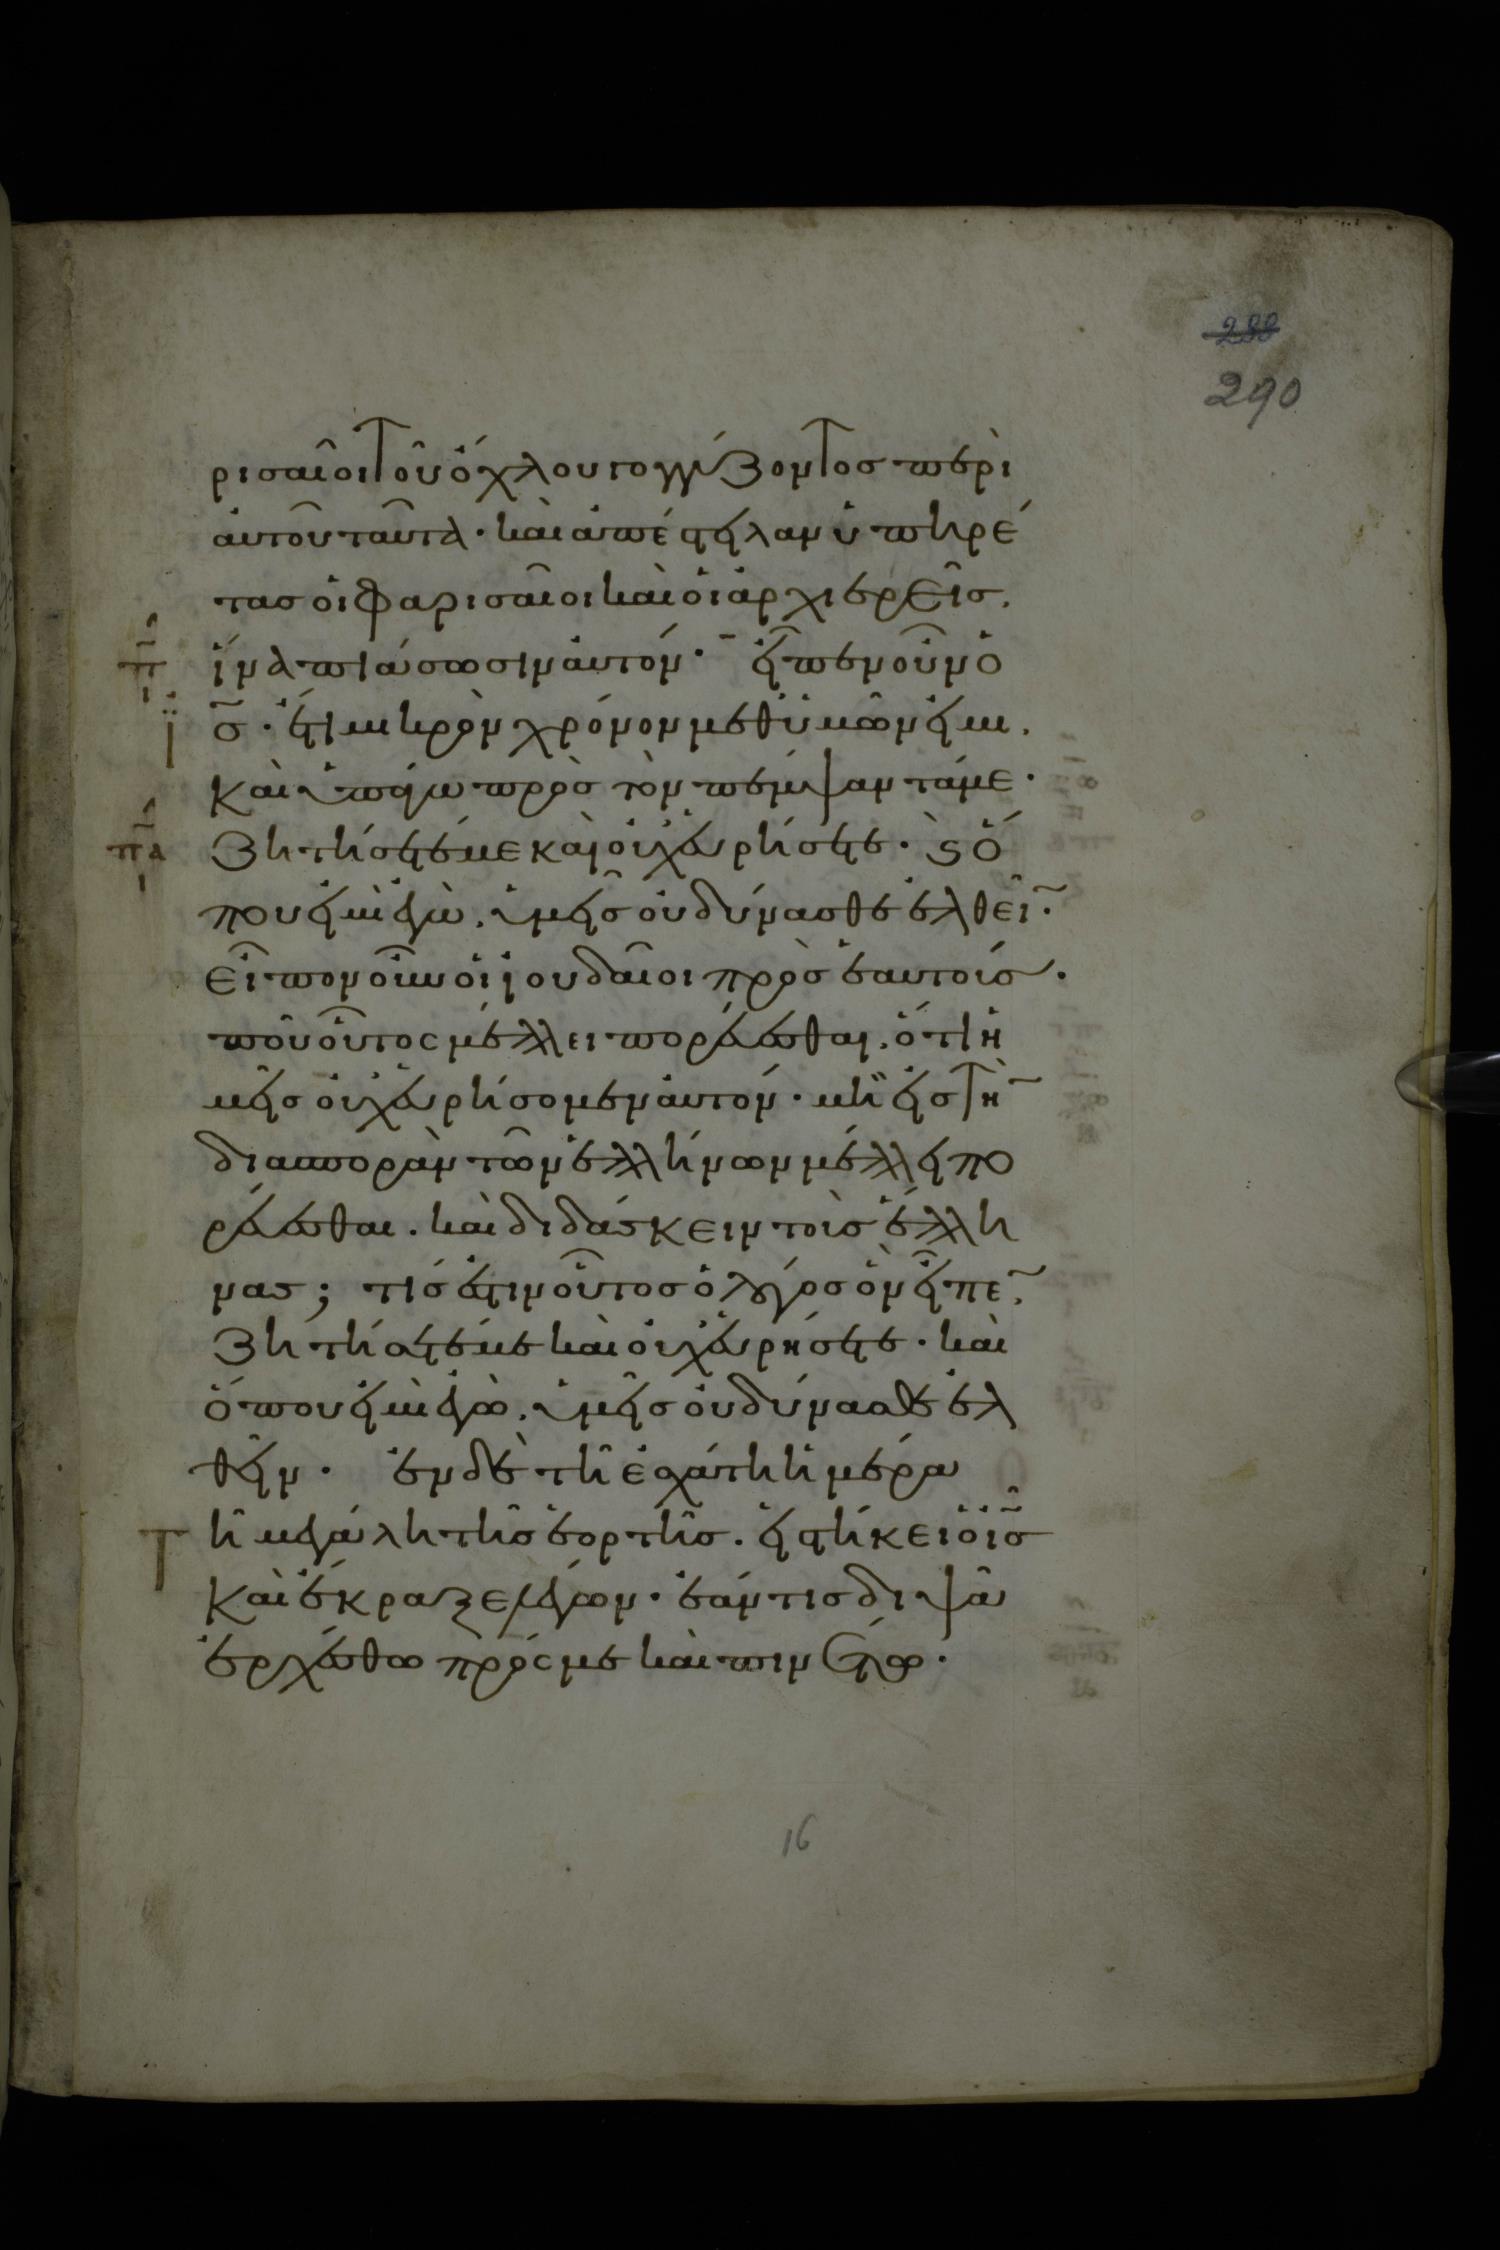 288
290
ρισαῖοι τοῦ ὄχλου τογγίζοντος περὶ
αὐτοῦ ταῦτα· καὶ ἀπέστειλαν ὑπηρέ
τας οἱ φαρισαῖοι καὶ οἱ ἀρχιερεῖς.
ἵνα πιάσωσιν αὐτόν· εἶπεν οὖν ὁ
ι͞ς· ἔτι μικρὸν χρόνον μεθ ὑμῶν εἰμι.
καὶ ὑπάγω πρὸς τὸν πέμψαντά με·
ζητήσετέ με καὶ οὐχ εὑρήσετε· ϛ ὅ
που εἰμὶ ἐγὼ. ὑμεῖς οὐ δύνασθε ἐλθεῖ͞·
εἶπον οὖν οἱ ἰουδαῖοι πρὸς ἑαυτούς·
ποῦ οὗτος μέλλει πορεύεσθαι. ὅτι ἡ
μεῖς οὐχ εὑρήσομεν αὐτόν· μὴ εἰς τὴ͞
διασπορὰν τῶν ἑλλήνων μέλλει πο
ρεύεσθαι. καὶ διδάσκειν τοὺς ἕλλη
νας; τίς ἐστιν οὗτος ὁ λόγος ὃν εἶπε͞.
ζητήσετέ με καὶ οὐχ εὑρήσετε· καὶ
ὅπου εἰμὶ ἐγὼ. ὑμεῖς οὐ δύνασθε ἐλ
θεῖν· ἐν δὲ τῇ ἐσχάτη ἡμέρα
τῆ μεγάλη τῆς ἑορτῆς. εἱστήκει ὁ ι͞ς
καὶ ἔκραξε λέγων· ἐάν τις διψᾶ
ἐρχέσθω πρός με καὶ πινέτω·
16